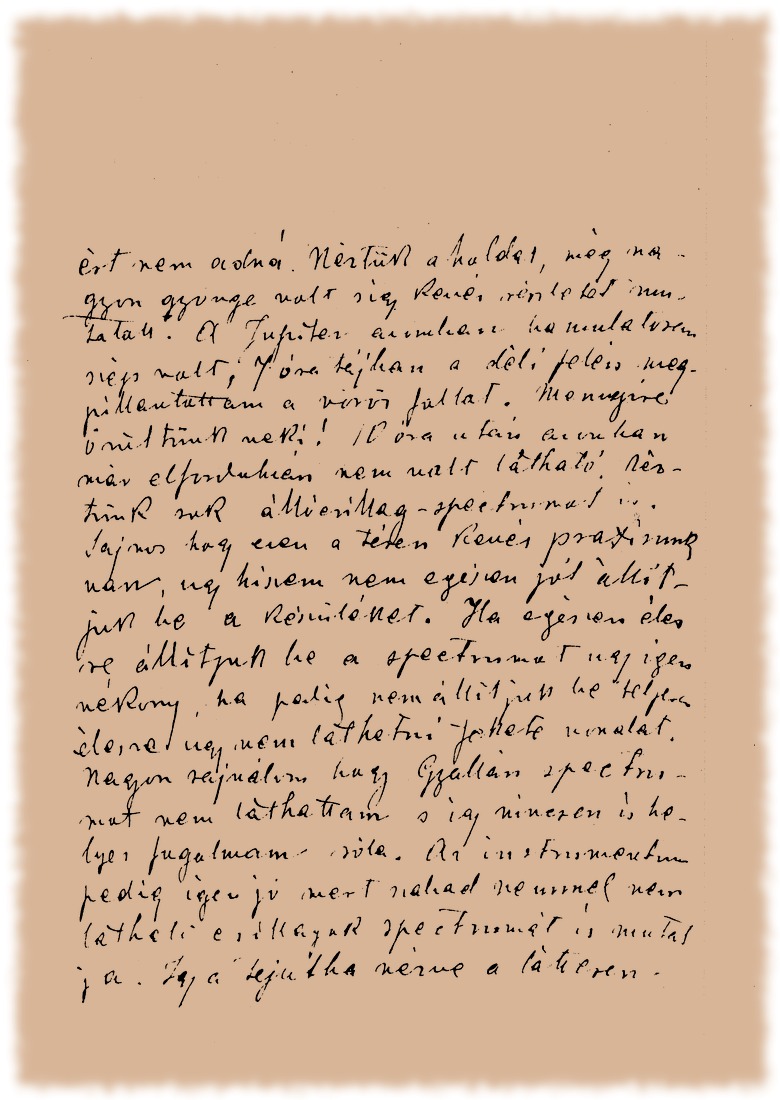 ért nem adná. Néztük a holdat, még na-
gyon gyönge volt s így kevés részletet mu-
tatott. A Jupiter azonban ha mulatosan
szép volt, 7 óra tájban a déli felén meg-
pillantottam a vörös foltat. Mennyire
örültünk neki! 10 óra után azonban
már elfordulván nem volt látható. Néz-
tünk sok állócsillag-spectrumot is.
Sajnos hogy ezen a téren kevés praxisunk
van, ugy hiszem nem egészen jól állít-
juk be a készüléket. Ha egészen éles
re állítjuk be a spectrumot ugy igen
vékony, ha pedig nem állítjuk be teljesen
élesre ugy nem láthatni fekete vonalat.
Nagyon sajnálom hogy Gyallán spectru-
mot nem láthattam s igy nincsen is he-
lyes fogalmam róla. Az instrumentum
pedig igen jó mert szabad szemmel nem
látható csillagok spectrumát is mutat
ja. Igy a tejútba nézve a látcsöven